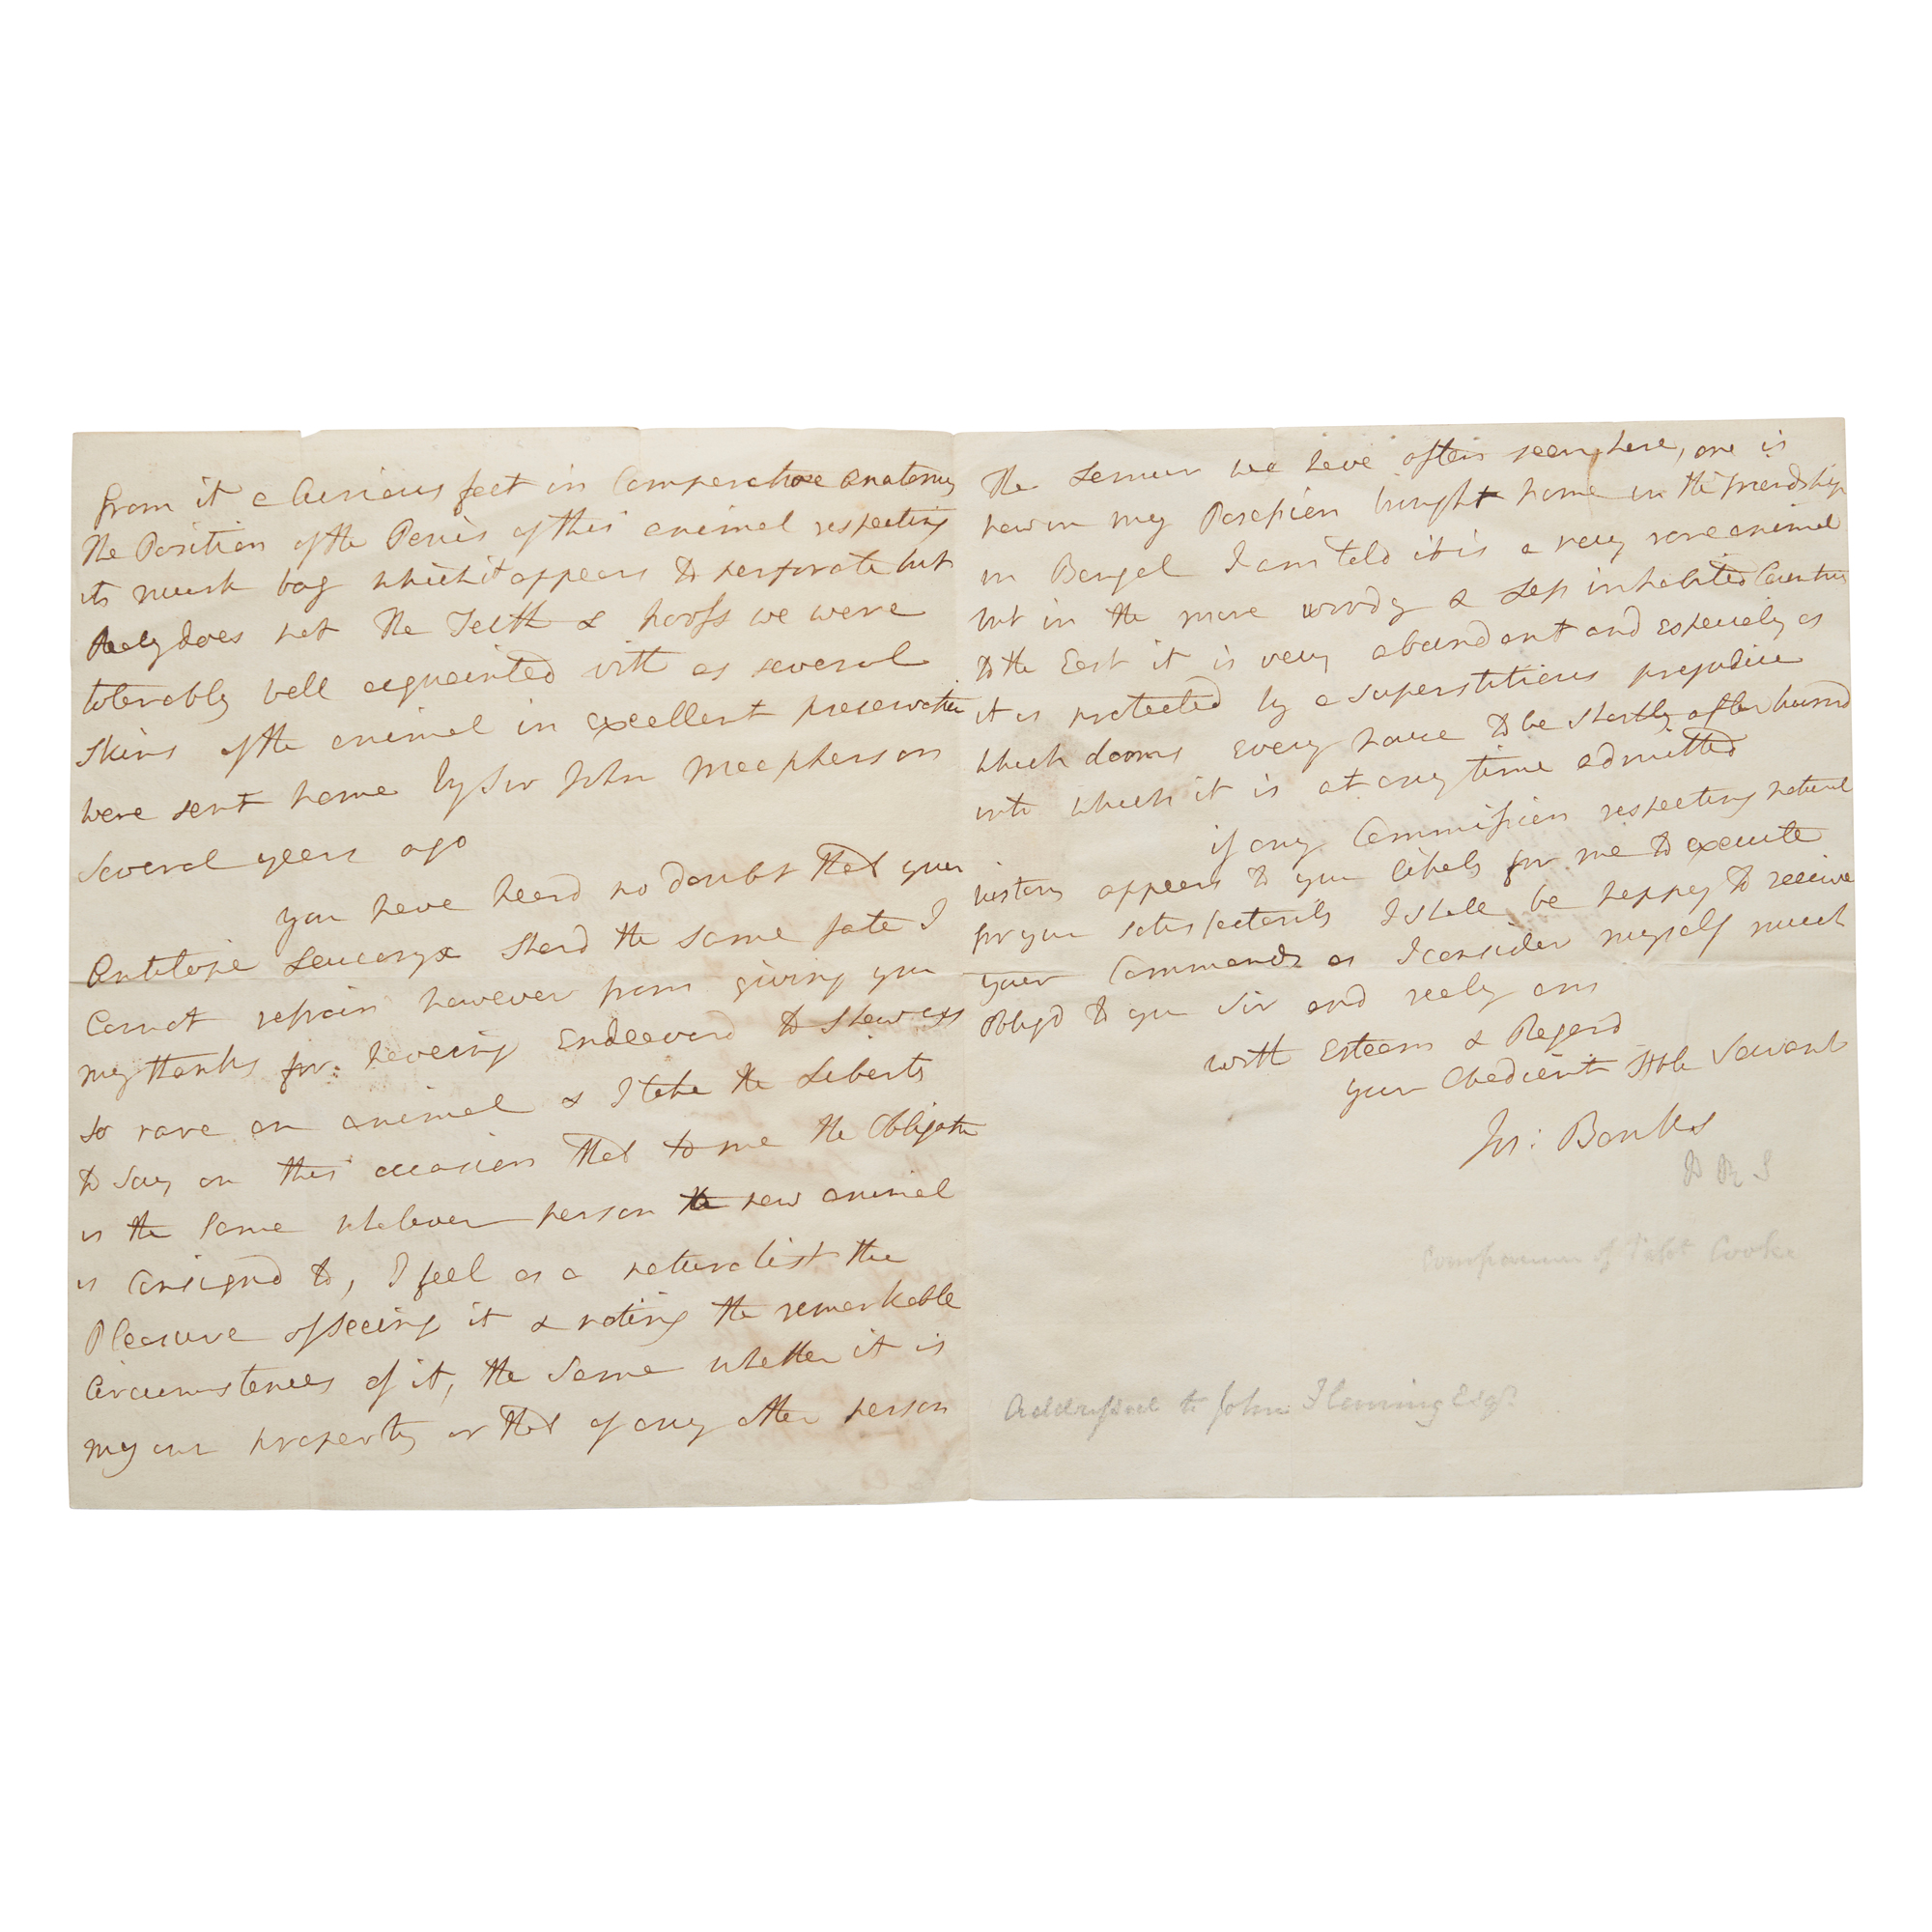 from it a Curious fact in Comparative anatomy
the Position of the Penis of this animal respecting
its musk bag which it appears to perforate but
realy does not The Teeth & hoofs we were
tolerably well acquainted with as several
Skins of the animal in excellent preservation
were sent home by Sir John Macpherson
Several years ago
you have heard no doubt that your
Antilope Leucoryx shard the same fate I
Cannot refrain however from giving you
my thanks for haveing Endeavord to Shew us
so rare an animal & I take the Liberty
to Say on this occasion that to me the Obligation
is the Same whatever person the new animal
is Consignd to, I feel as a naturalist the
Pleasure of seeing it & noting the remarkable
Circumstances of it, the Same whether it is
my own property or that of any other person
The Lemur we have often seen here, one is
now in my Possession brought home in the friendship
in Bengal I am told it is a very rare animal
but in the more woody & Less inhabited Countries
to the East it is very abundant and especialy as
it is protected by a Superstitious prejudice
which dooms every house to be shortly after burnd
into which it is at any time admitted
if any Commission respecting natural
history appears to you likely for me to execute
for you satisfactorily I shall be happy to receive
your Commands as I consider myself much
Obligd to you Sir and realy am
with Esteem & Regard
your Obedient Hble Servant
Jos: Banks
P R S
Companion of Capt Cooke
Addressed to John Fleming Esqr.